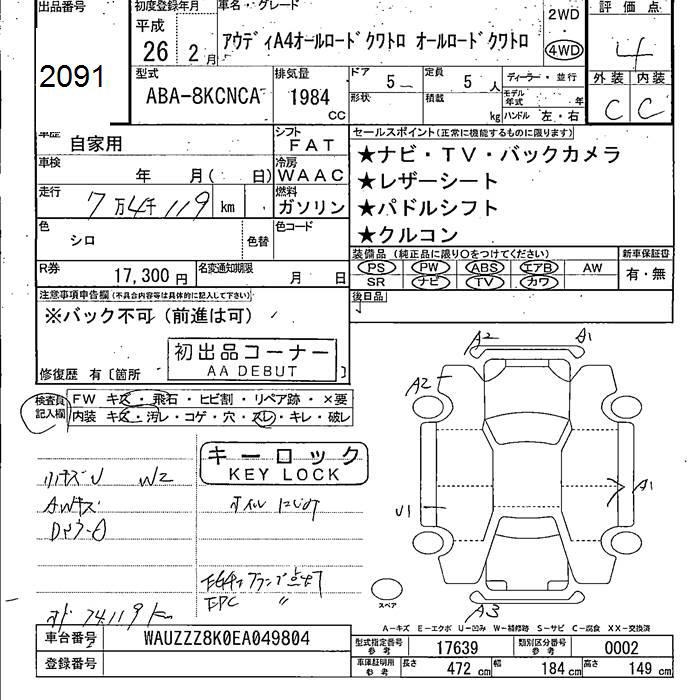 出品番号
2091
初度登録年月
平成
26 2 月
車名・グレード
アウディA4オールロードクワトロ オールロードクワトロ
2WD
4WD
評価点
4
型式
ABA-8KCNCA
排気量
1984
CC
ドア 5
定員 5 人
形状
積載
kg
ディーラー・並行
モデル年式 年
ハンドル 左・右
外装 内装
C C
車歴
自家用
シフト
FAT
車検
年 月( 日)
冷房
WAAC
走行
7万4千119 km
燃料
ガソリン
色
シロ
色替
色コード
R券
17,300 円
名変通知期限
月 日
セールスポイント(正常に機能するものに限ります)
★ナビ・TV・バックカメラ
★レザーシート
★パドルシフト
★クルコン
装備品 (純正品に限り○をつけてください)
新車保証書
PS PW ABS エアB AW
SR ナビ TV カワ
有・無
後日品
注意事項申告欄(不具合内容等は具体的に記入して下さい)
※バック不可(前進は可)
初出品コーナー
AA DEBUT
修復歴 有〔箇所
検査員
記入欄
FW キズ・飛石・ヒビ割・リペア跡・×要
内装 キズ・汚レ・コゲ・穴・スレ・キレ・破レ
キーロック
KEY LOCK
小キズU W2
AWキズ
オイルにじみ
EPC 〃
74119km
A2
A1
A2
A1
U1
A3
スペア
A-キズ E-エクボ U-凹み W-補修跡 S-サビ C-腐食 XX-交換済
車台番号
WAUZZZ8K0EA049804
登録番号
型式指定番号
参考
17639
類別区分番号
参考
0002
車庫証明用
参考
長さ 472 cm
幅 184 cm
高さ 149 cm